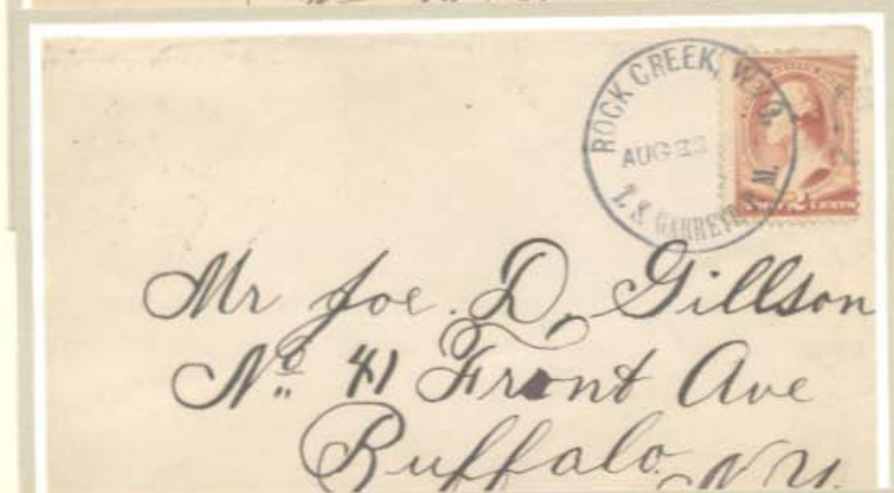 ROCK CREEK, WYO.
AUG 22
Z. S. GARRETT, P. M.
Mr Joe. D, Gillson
No. 41 Front Ave
Buffalo N Y.